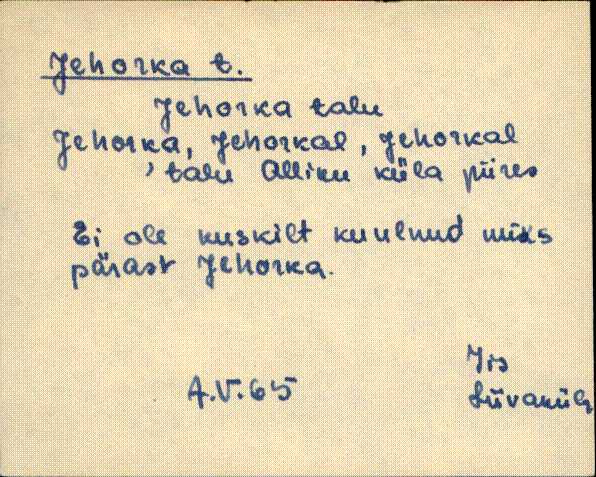 Jehorka t.
Jehorka talu
Jehorka, Jehorkal, Jehorkal
, talu Alliku küla piires
Ei ole kuskilt kuulnud miks
pärast Jehorka.
Jis
A.V.65
Liivaküla